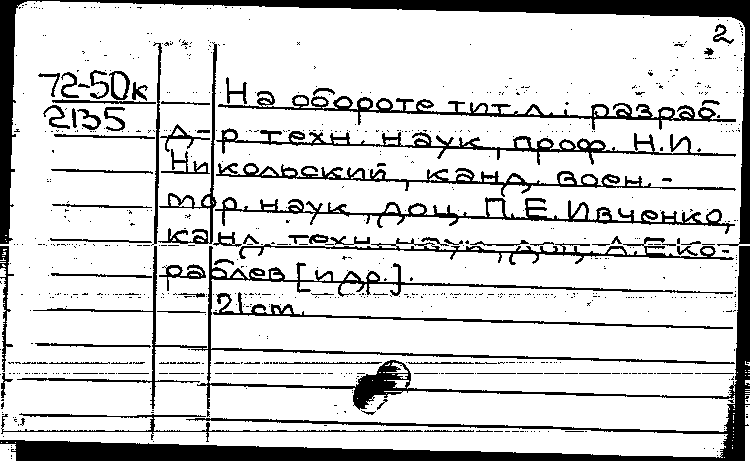 2
72-50к
2135
На обороте тит.л.: разраб.
д-р техн. наук, проф. Н.И.
Никольский, канд. воен.-
мор. наук, доц. П.Е.Ивченко,
канд. техн. наук, доц. А.Е.Ко-
раблев [и др.].
21 cm.